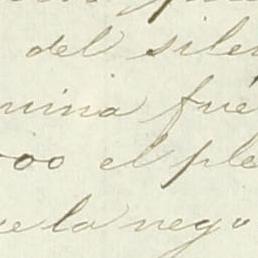 del silen
mina fué
000 el ple
e la nego